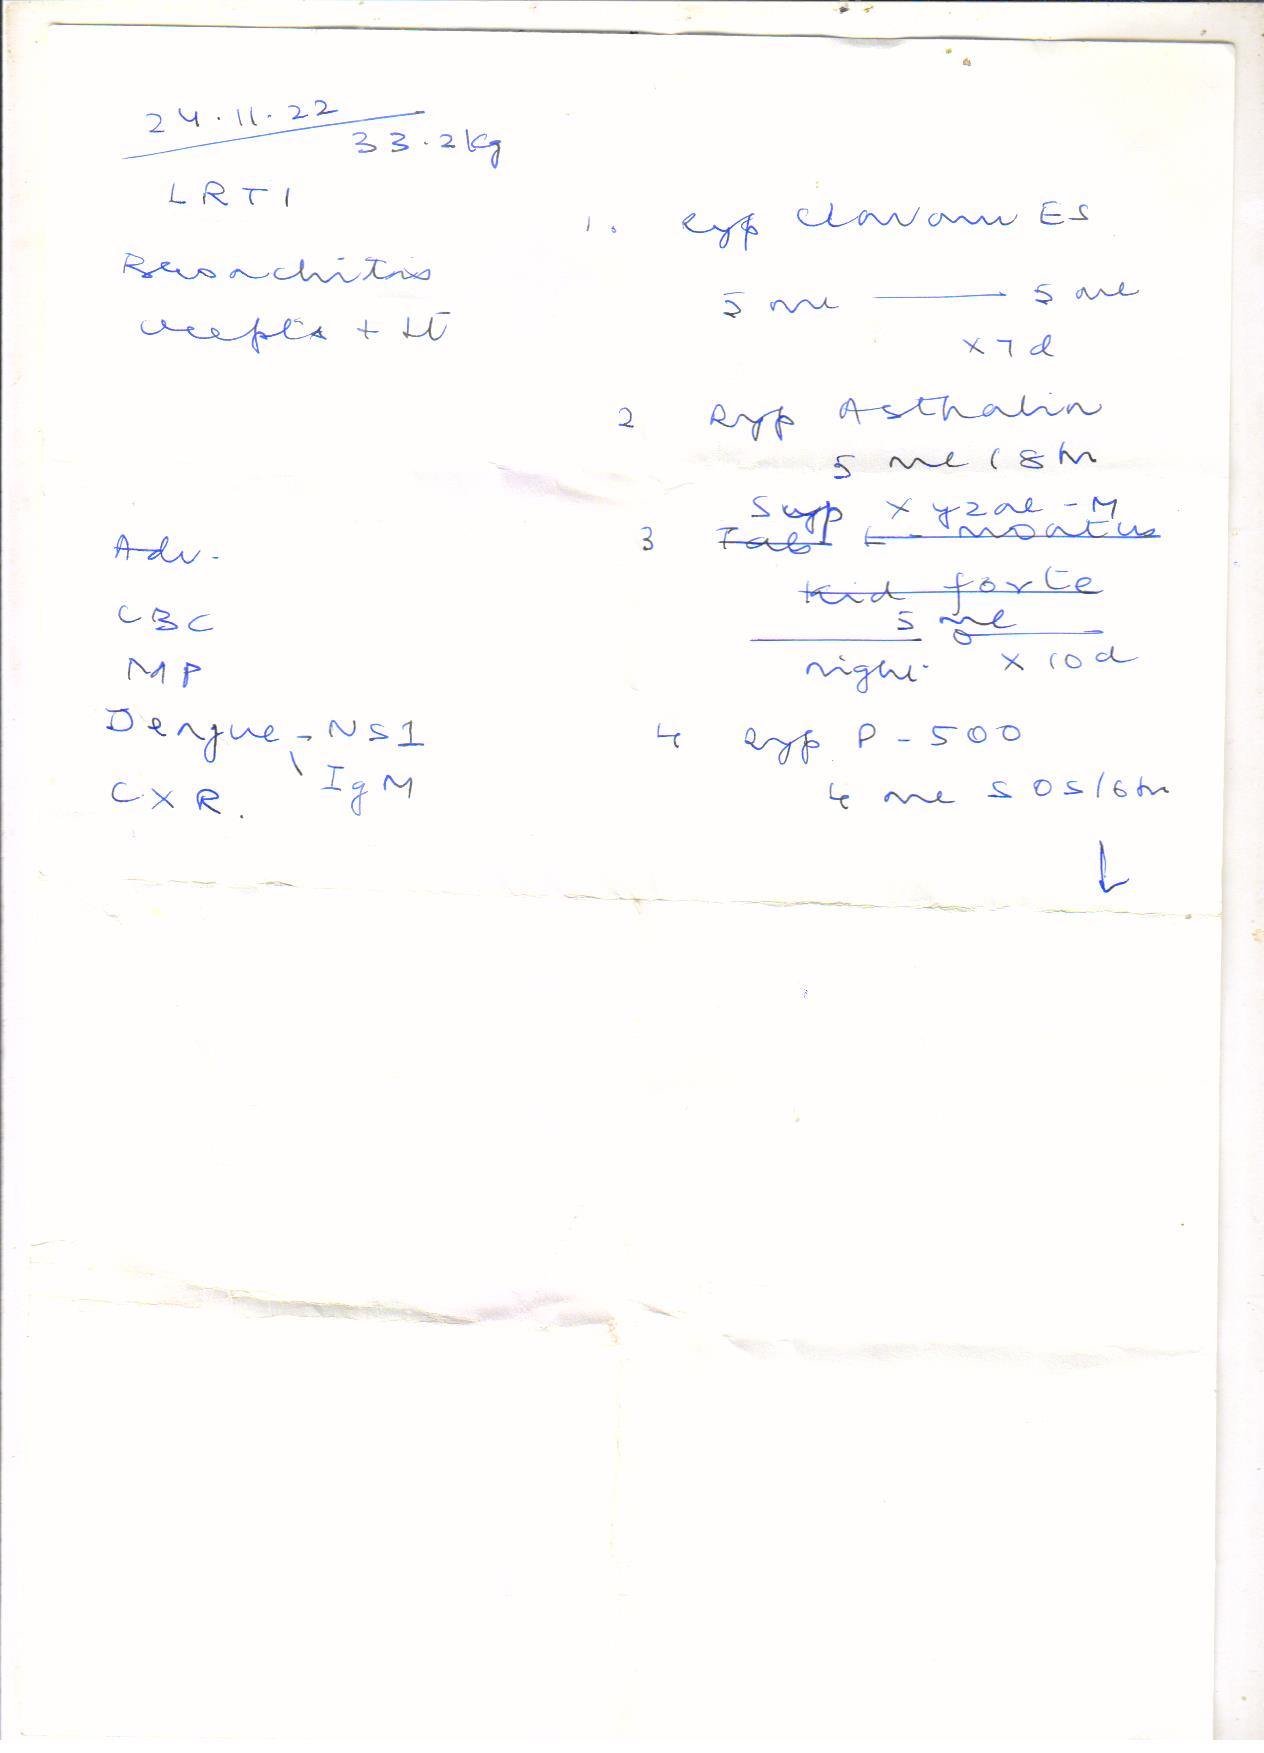 24.11.22
33.2kg
LRTI
Bronchitis
crepts +
Adv.
CBC
MP
Dengue - NS1
\ IgM
CXR.
1. Syp Clavam ES
5 ml —— 5 ml
x 7 d
2 Syp Asthalin
5 ml / 8 hr
Syp Xyzal - M
3 Tab L - montus
Kid forte
5 ml
night. x 10 d
4 Syp P - 500
4 ml SOS/6hr
↓